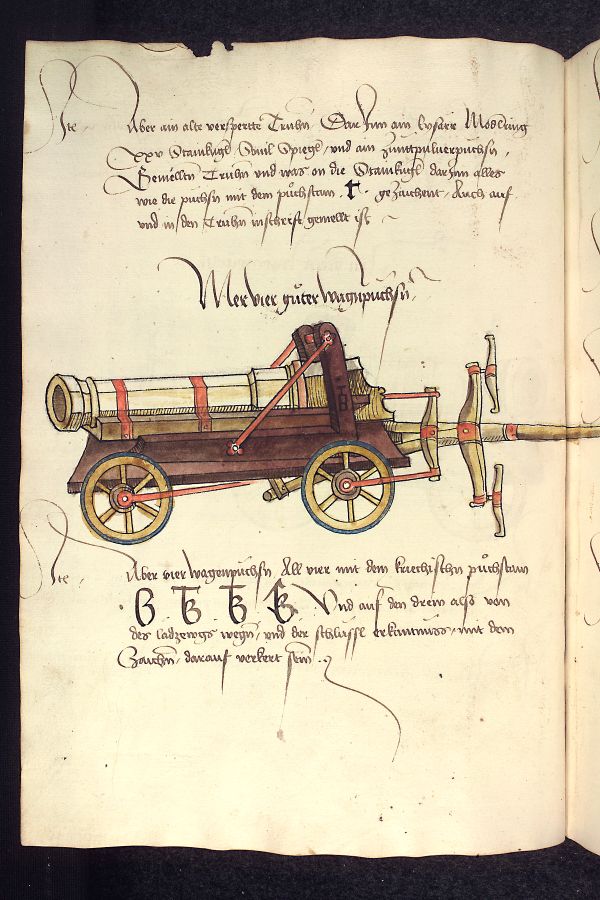 Ite Aber ain alte versperrte Truhn Dar Inn ain
xxv Stainkugl Sovil Spiegl und ain Zinttpulverpuchsn
Gemellten Truhn und was on die Stainkugl dar Inn alles
wie die puchsn mit dem půchstam t gezaichent Auch auf
und in den Truhn inschrift gemellt ist
Mer vier gůter wagnpuchsn
Ite Aber vier wagenpuchsn All vier mit dem kriechischn půchstam
Und auf den drein also von
des ladzewgs wegn und der schlussl erkantnuss mit dem
Zaichn darauf verkert sein